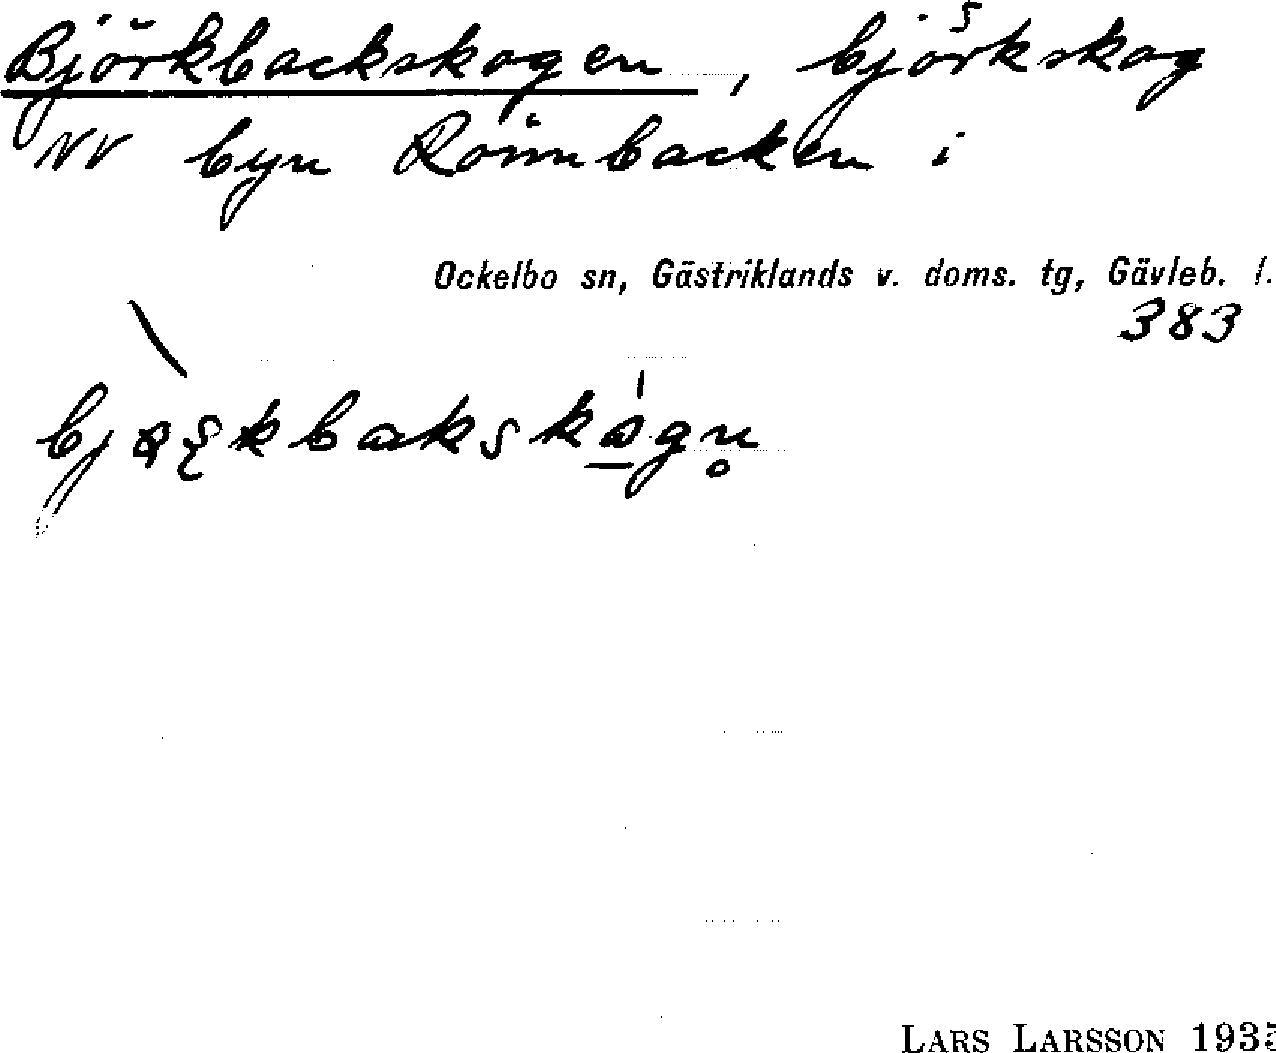 Björkbackskogen, björkskog
NV byn Rönnbacken i
Ockelbo sn, Gästriklands v. doms. tg, Gävleb. l.
383
LARS LARSSON 1935